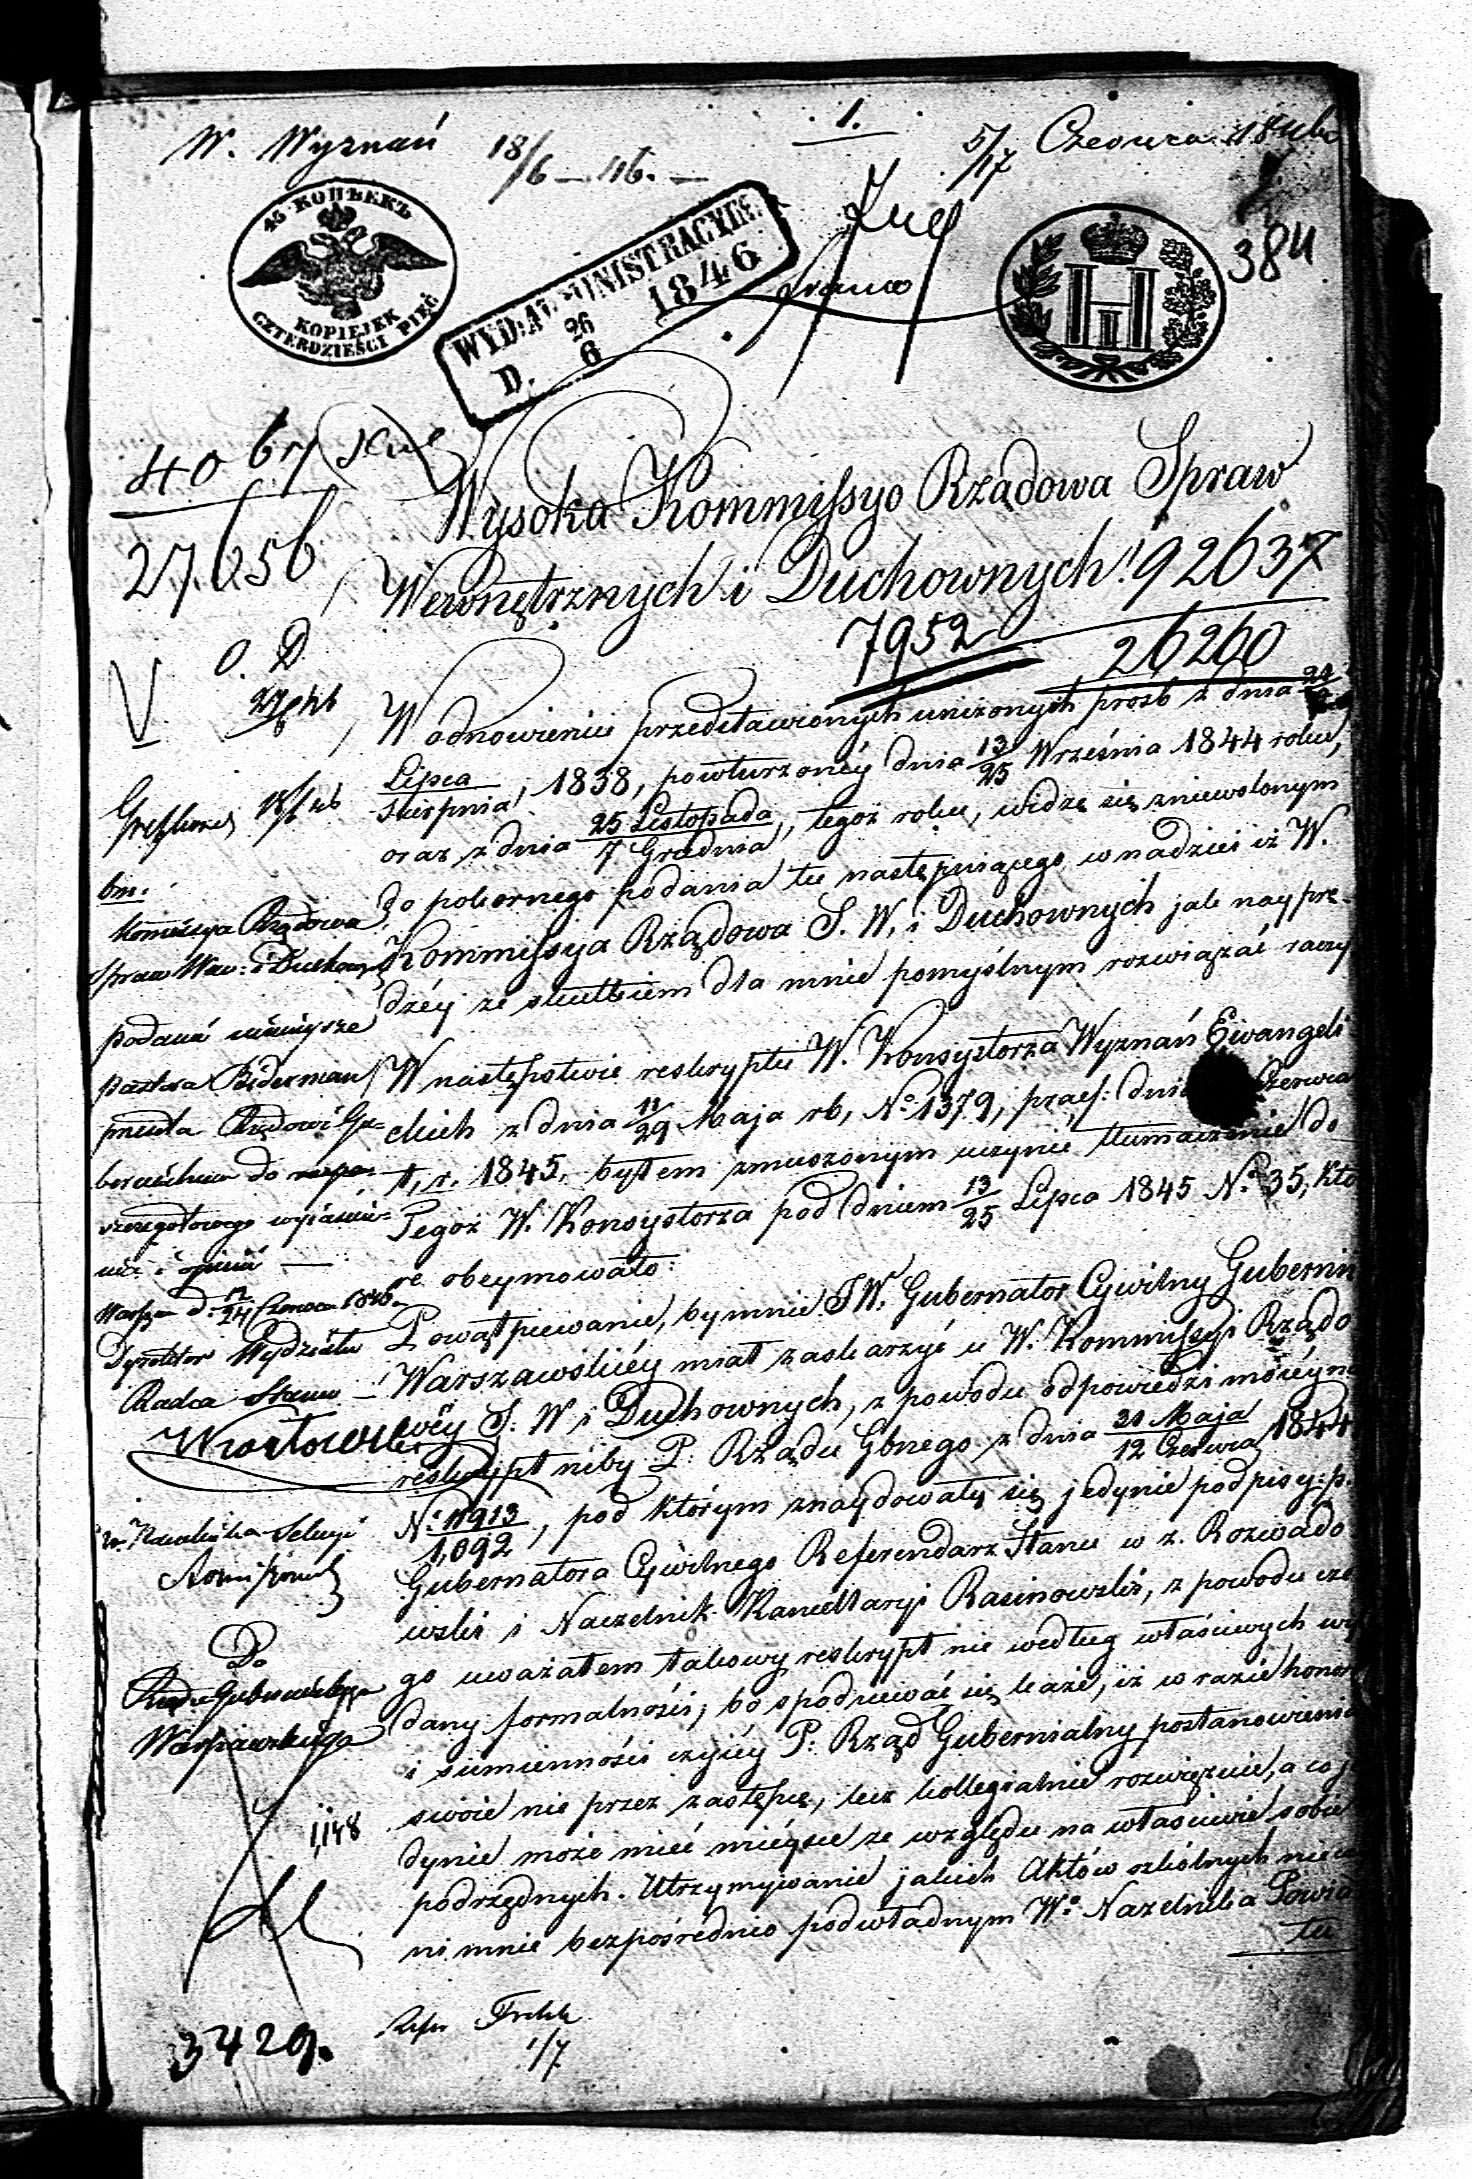 W. Wyznań
18/6 46.
1.
5/17 Czerwca 1846
45 КОПѢЕКЪ
KOPIEJEK
CZTERDZIEŚCI PIĘĆ
WYDZ. ADMINISTRACYJN.
D. 26/6 1846
384
40
27656
Wysoka Kommissyo Rządowa Spraw
Wewnętrznych i Duchownych!
92637
7952
26260
O. D
W odnowieniu przedstawionych uniżonych prośb z dnia
Lipca/Sierpnia, 1838, powturzonéy dnia 13/25 Września 1844 roku,
oraz z dnia 25 Listopada/7 Grudnia, tegoż roku, widzę się zniewolonym
do pokornego podania tu następuiącego, w nadziei iż W.
Kommissya Rządowa S. W. i Duchownych jak nayprę-
dzéy ze skutkiem dla mnie pomyślnym rozwiązać raczy
W następstwie reskryptu W. Konsystorza Wyznań Ewangeli
ckich z dnia 11/29 Maja rb, No 1379, praes: dnia Czerwca
t, r. 1845, byłem zmuszonym uczynić tłumaczenie do
Tegoż W. Konsystorza pod dniem 13/25 Lipca 1845 No 35, któ
re obeymowało:
Powątpiewanie, by mnie JW. Gubernator Cywilny Gubernii
Warszawskiéy miał zaskarzyć u W. Kommissyi Rządo
wéy S. W i Duchownych, z powodu odpowiedzi moiéy na
reskrypt niby P. Rządu Gbnego z dnia 31 Maja/12 Czerwca 1844
No 11913/1,092, pod którym znaydowały się jedynie podpisy: p.
Gubernatora Cywilnego Referendarz Stanu w z. Rozwado
wski i Naczelnik Kancellaryi Rasinowski, z powodu cze
go uważałem takowy reskrypt nie według właściwych wy
dany formalności; bo spodziewać się każe, iż w razie honoru
i sumienności czyiéy P. Rząd Gubernialny postanowienia
swoie nie przez zastępcę, lecz kollegialnie rozwięzuie, a co je
dynie może mieć mieysce ze względu na właściwie sobie
podrzędnych. Utrzymywanie jakich Aktów szkólnych nie czy
ni mnie bezpośrednio podwładnym Wo Naczelnika Powia
tu
bm.
Kommissya Rządowa
Spraw Wew: i Duchow:
podanie niniejsze
pastora Biderman
przesyła Rządowi Gu-
bernialnemu do
szczegółowego wyjaśnie-
nia i opinii
Warsza d. 12/24 Czerwca 1846
Dyrektor Wydziału
Radca Stanu
Do
Rządu Gubernialnego
Warszawskiego
1,148
3429.
1/7